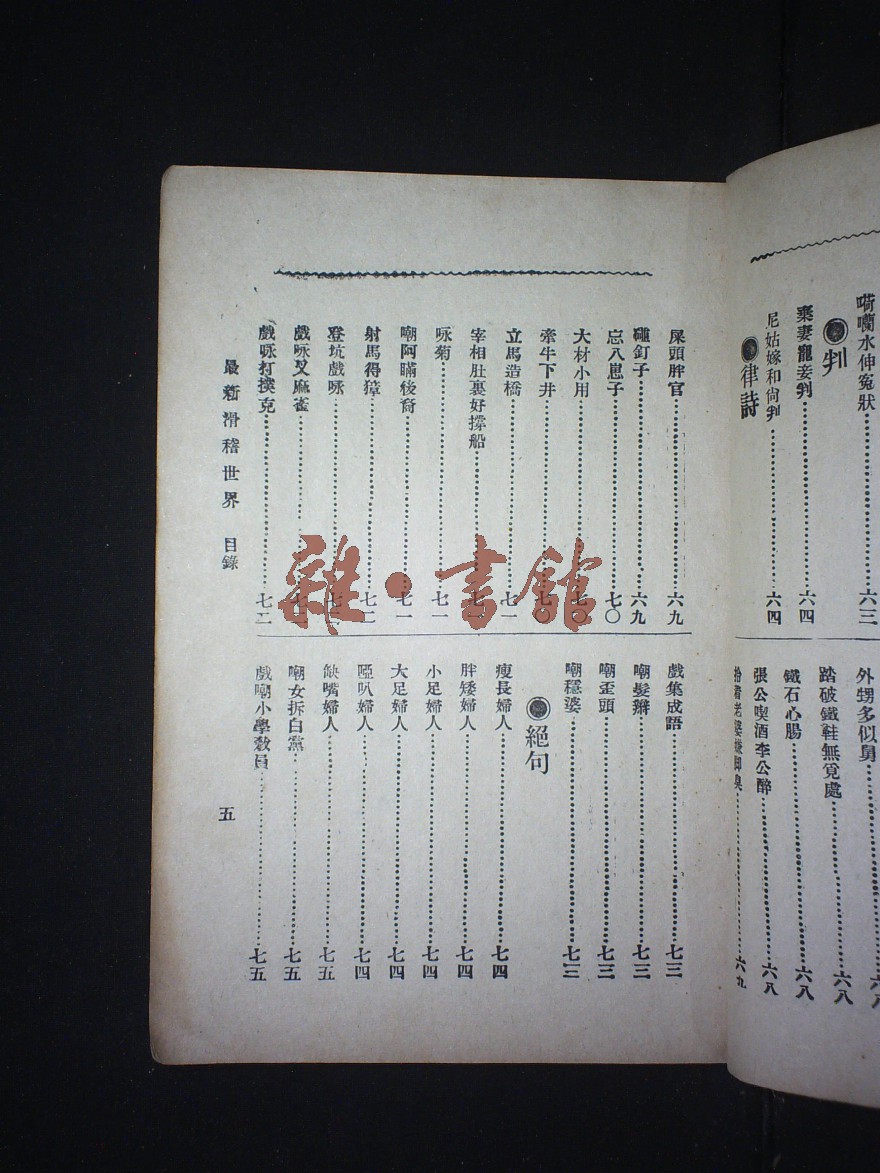 嗬囒水伸寃狀⋯⋯六三
判
棄妻寵妾判⋯⋯六四
尼姑嫁和尙判⋯⋯六四
律詩
外甥多似舅⋯⋯六八
踏破鐵鞋無覓處⋯⋯六八
鐵石心腸⋯⋯六八
張公喫酒李公醉⋯⋯六八
老婆嫌脚臭⋯⋯六九
屎頭胖官⋯⋯六九
碰釘子⋯⋯六九
忘八崽子⋯⋯七〇
大材小用⋯⋯七〇
牽牛下井⋯⋯七〇
立馬造橋⋯⋯七一
宰相肚裏好撐船⋯⋯七一
咏菊⋯⋯七一
嘲阿瞞後裔⋯⋯七一
射馬得獐⋯⋯七二
登坑戲咏⋯⋯七二
戲咏叉麻雀⋯⋯七二
戲咏打撲克⋯⋯七二
戲集成語⋯⋯七三
嘲髮辮⋯⋯七三
嘲歪頭⋯⋯七三
嘲穩婆⋯⋯七三
絕句
瘦長婦人⋯⋯七四
胖矮婦人⋯⋯七四
小足婦人⋯⋯七四
大足婦人⋯⋯七四
啞叭婦人⋯⋯七四
缺嘴婦人⋯⋯七五
嘲女拆白黨⋯⋯七五
戲嘲小學敎員⋯⋯七五
最新滑稽世界 目錄
五
雜·書館